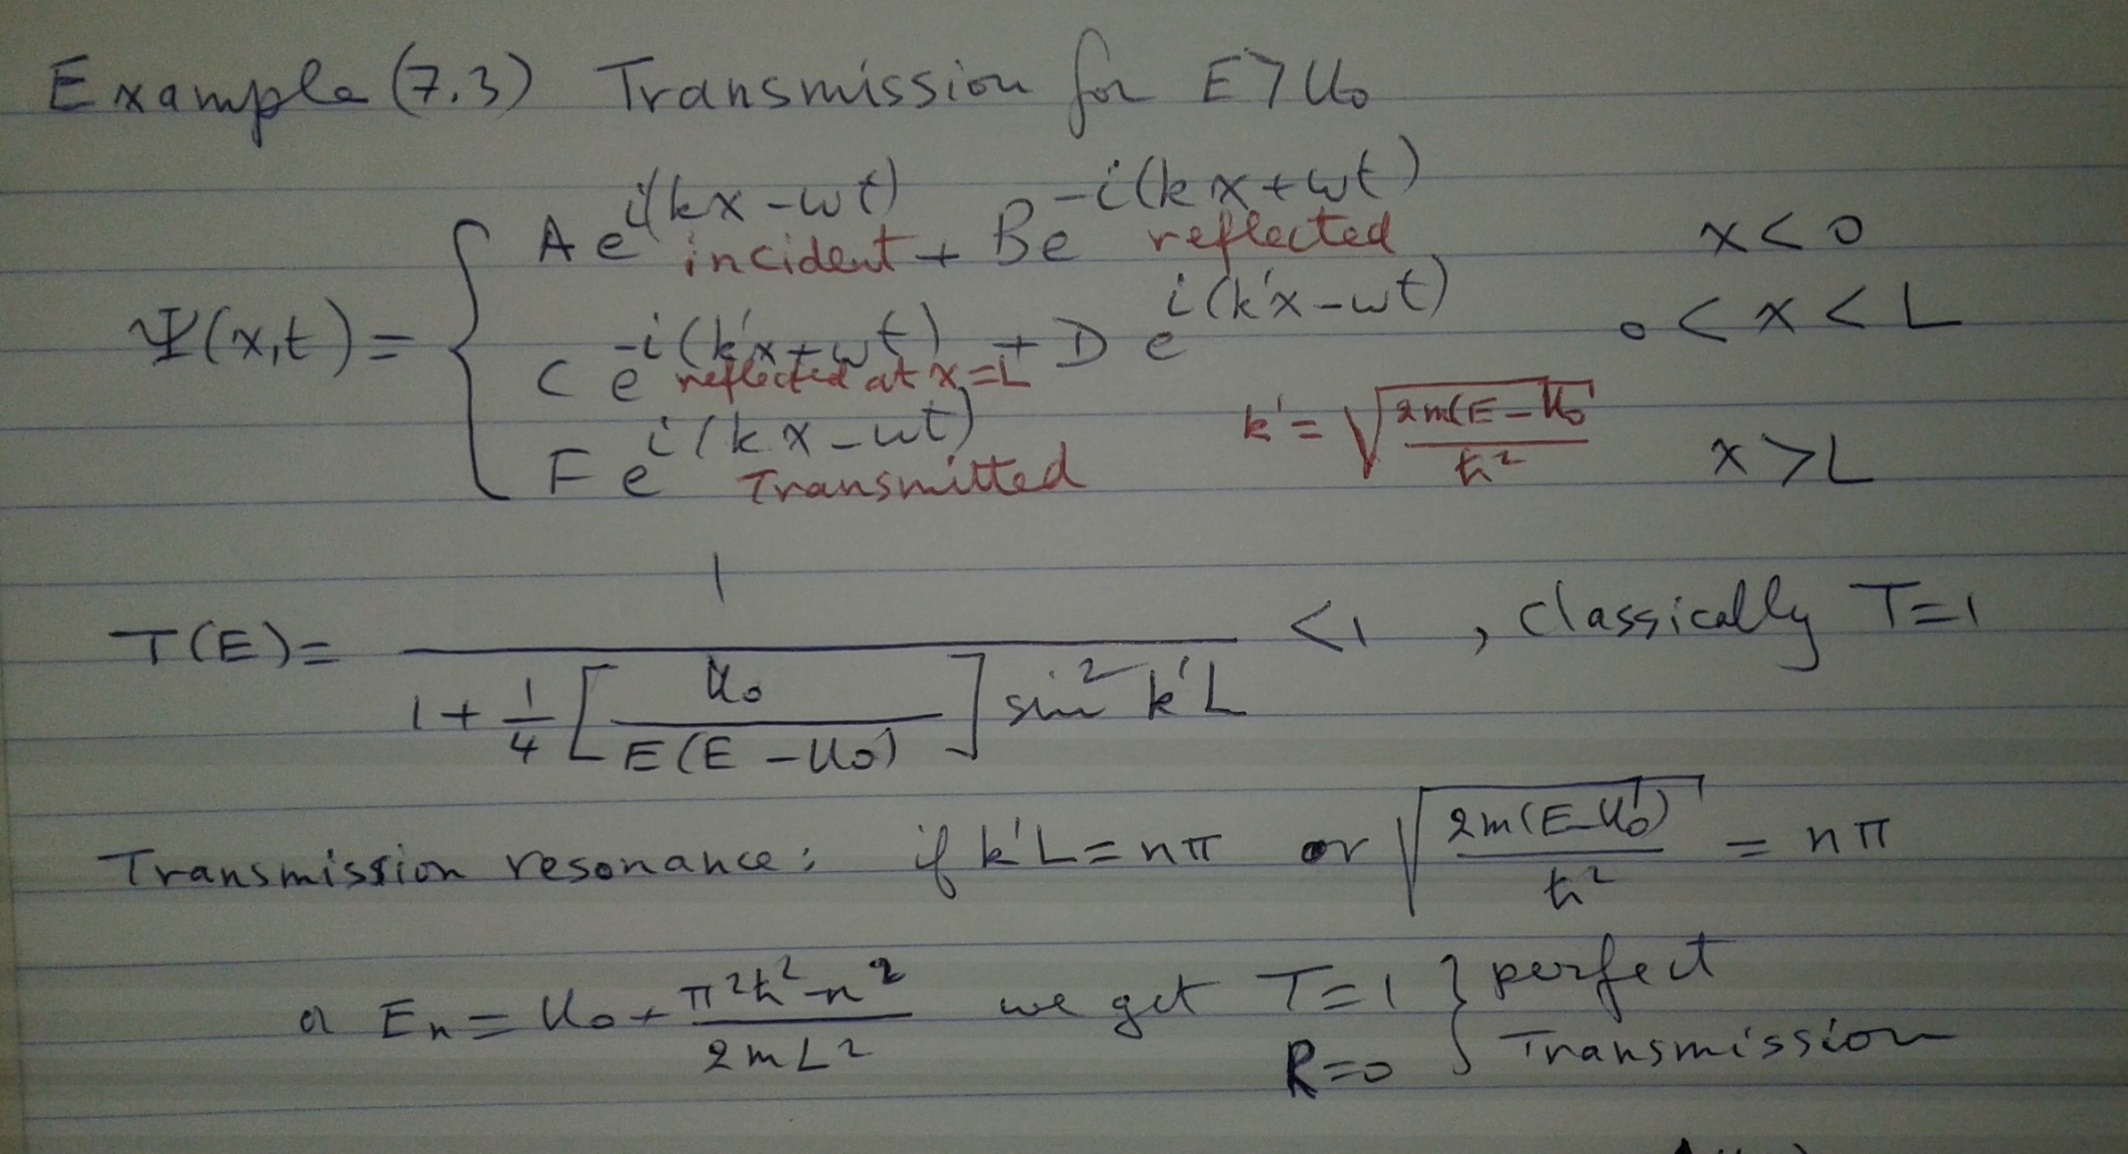 Example (7.3) Transmission for E>U₀
Ψ(x,t) = { A e^{i(kx-ωt)} incident + B e^{-i(kx+ωt)} reflected x<0
C e^{-i(k'x+ωt)} reflected at x=L + D e^{i(k'x-ωt)} 0<x<L
F e^{i(kx-ωt)} Transmitted k' = √(2m(E-U₀)/ħ²) x>L
T(E) = 1 / (1 + 1/4 [U₀ / E(E-U₀)] sin² k'L) <1 , Classically T=1
Transmission resonance: if k'L = nπ or √(2m(E-U₀)/ħ²) = nπ
or Eₙ = U₀ + π²ħ²n² / 2mL² we get T=1 } perfect
R=0 Transmission